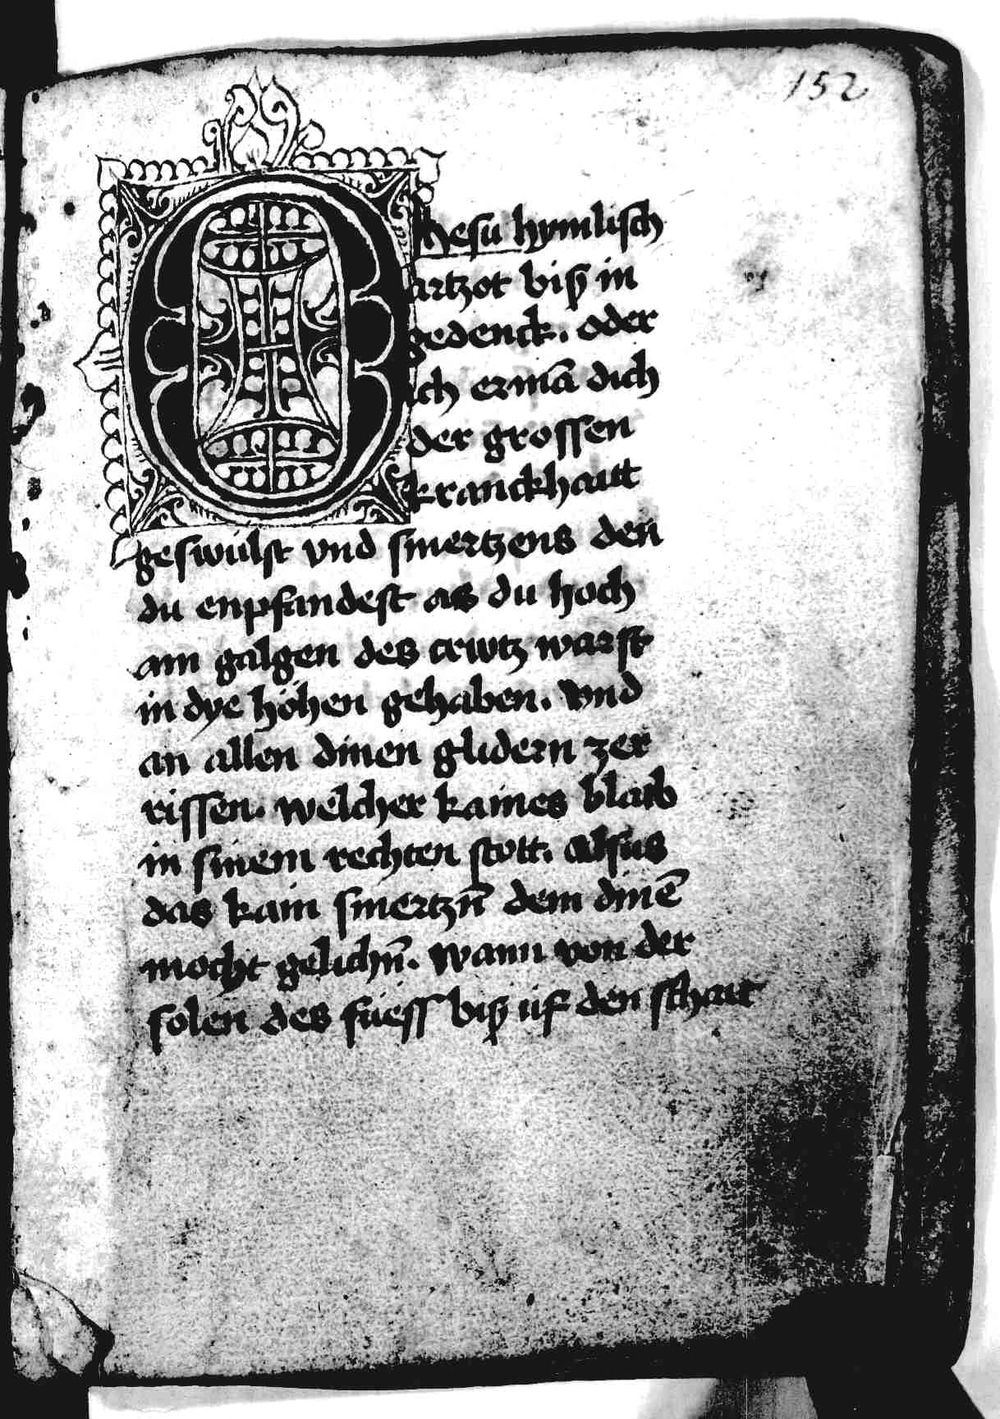 152
O Jhesu hymlisch
artzot biß in
gedenck. oder
ich ermā dich
der grossen
kranckhaitt
geswulst vnd smertzens den
du enpfandest as du hoch
am galgen des crwtz warst
in dye höhen gehaben. vnd
an allen dinen glidern zer
rissen. welcher kaines blaib
in sinem rechten stott. alsus
das kain smertzn̄ dem dinē
mocht gelichn̄. wann von der
solen des fuess biß uf den schait